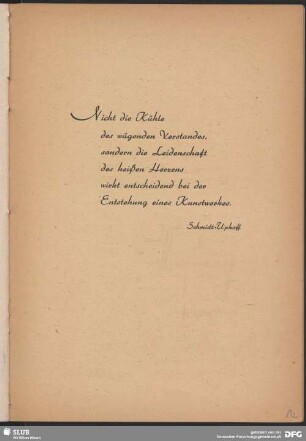 Nicht die Kühle
des wägenden Verstandes,
sondern die Leidenschaft
des heißen Herzens
wirkt entscheidend bei der
Entstehung eines Kunstwerkes.
Schmidt-Uphoff
SLUB
Wir führen Wissen.
gefördert von der
Deutschen Forschungsgemeinschaft
DFG